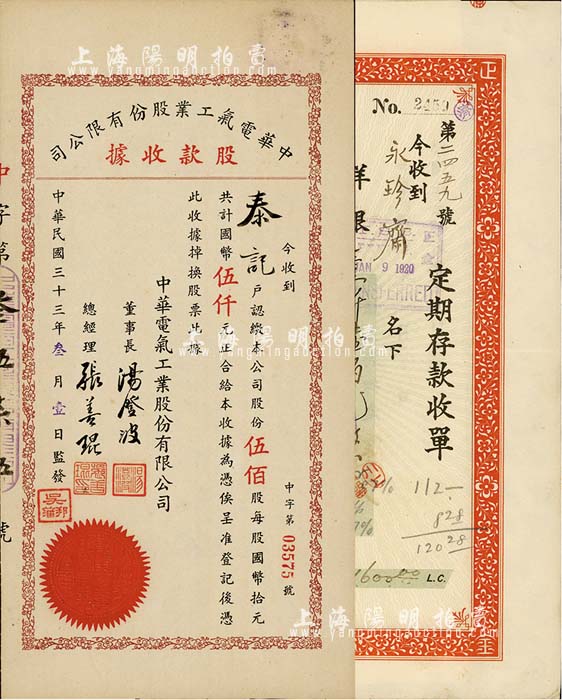 上海陽明拍賣
www.yangmingauction.com
中華電氣工業股份有限公司
股款收據
今收到
泰記戶認繳本公司股份伍佰股每股國幣拾元
共計國幣伍仟元正合給本收據為憑俟呈准登記後憑
此收據掉換股票此據
中華電氣工業股份有限公司
董事長 湯澄波
總經理 張善琨
中華民國三十三年叁月壹日監發
中字第 03575 號
中字第叁伍柒伍號
No. 2459
第二四五九號
今收到
永珍齋
名下
洋銀
定期存款收單
JAN 9 1920
112-
828
12028
1600.00 L.C.
上海陽明拍賣
www.yangmingauction.com
上海陽明拍賣
www.yangmingauction.com